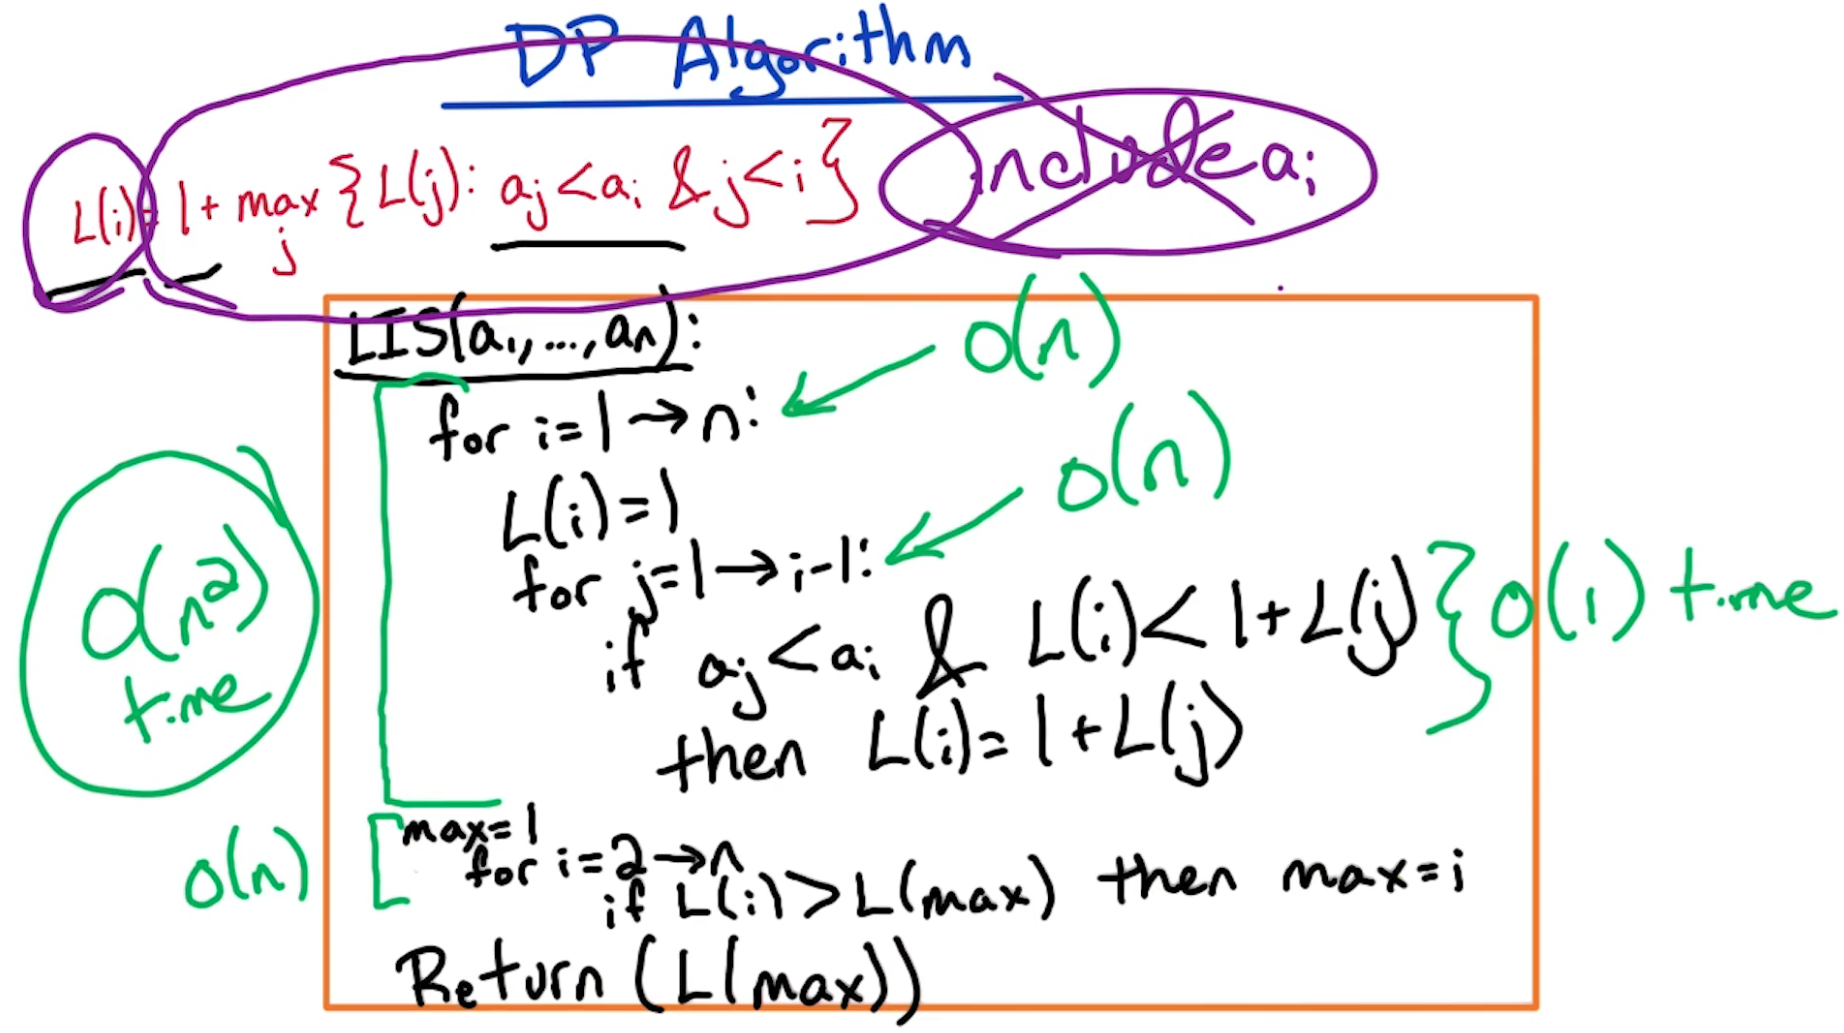 DP Algorithm
L(i) = 1 + max {L(j): aj < ai & j < i}
j
include ai
LIS(a1, ..., an):
O(n)
for i = 1 → n:
O(n)
L(i) = 1
for j = 1 → i-1:
if aj < ai & L(i) < 1 + L(j)
O(1) time
then L(i) = 1 + L(j)
O(n²)
time
max = 1
O(n)
for i = 2 → n
if L(i) > L(max) then max = i
Return (L(max))